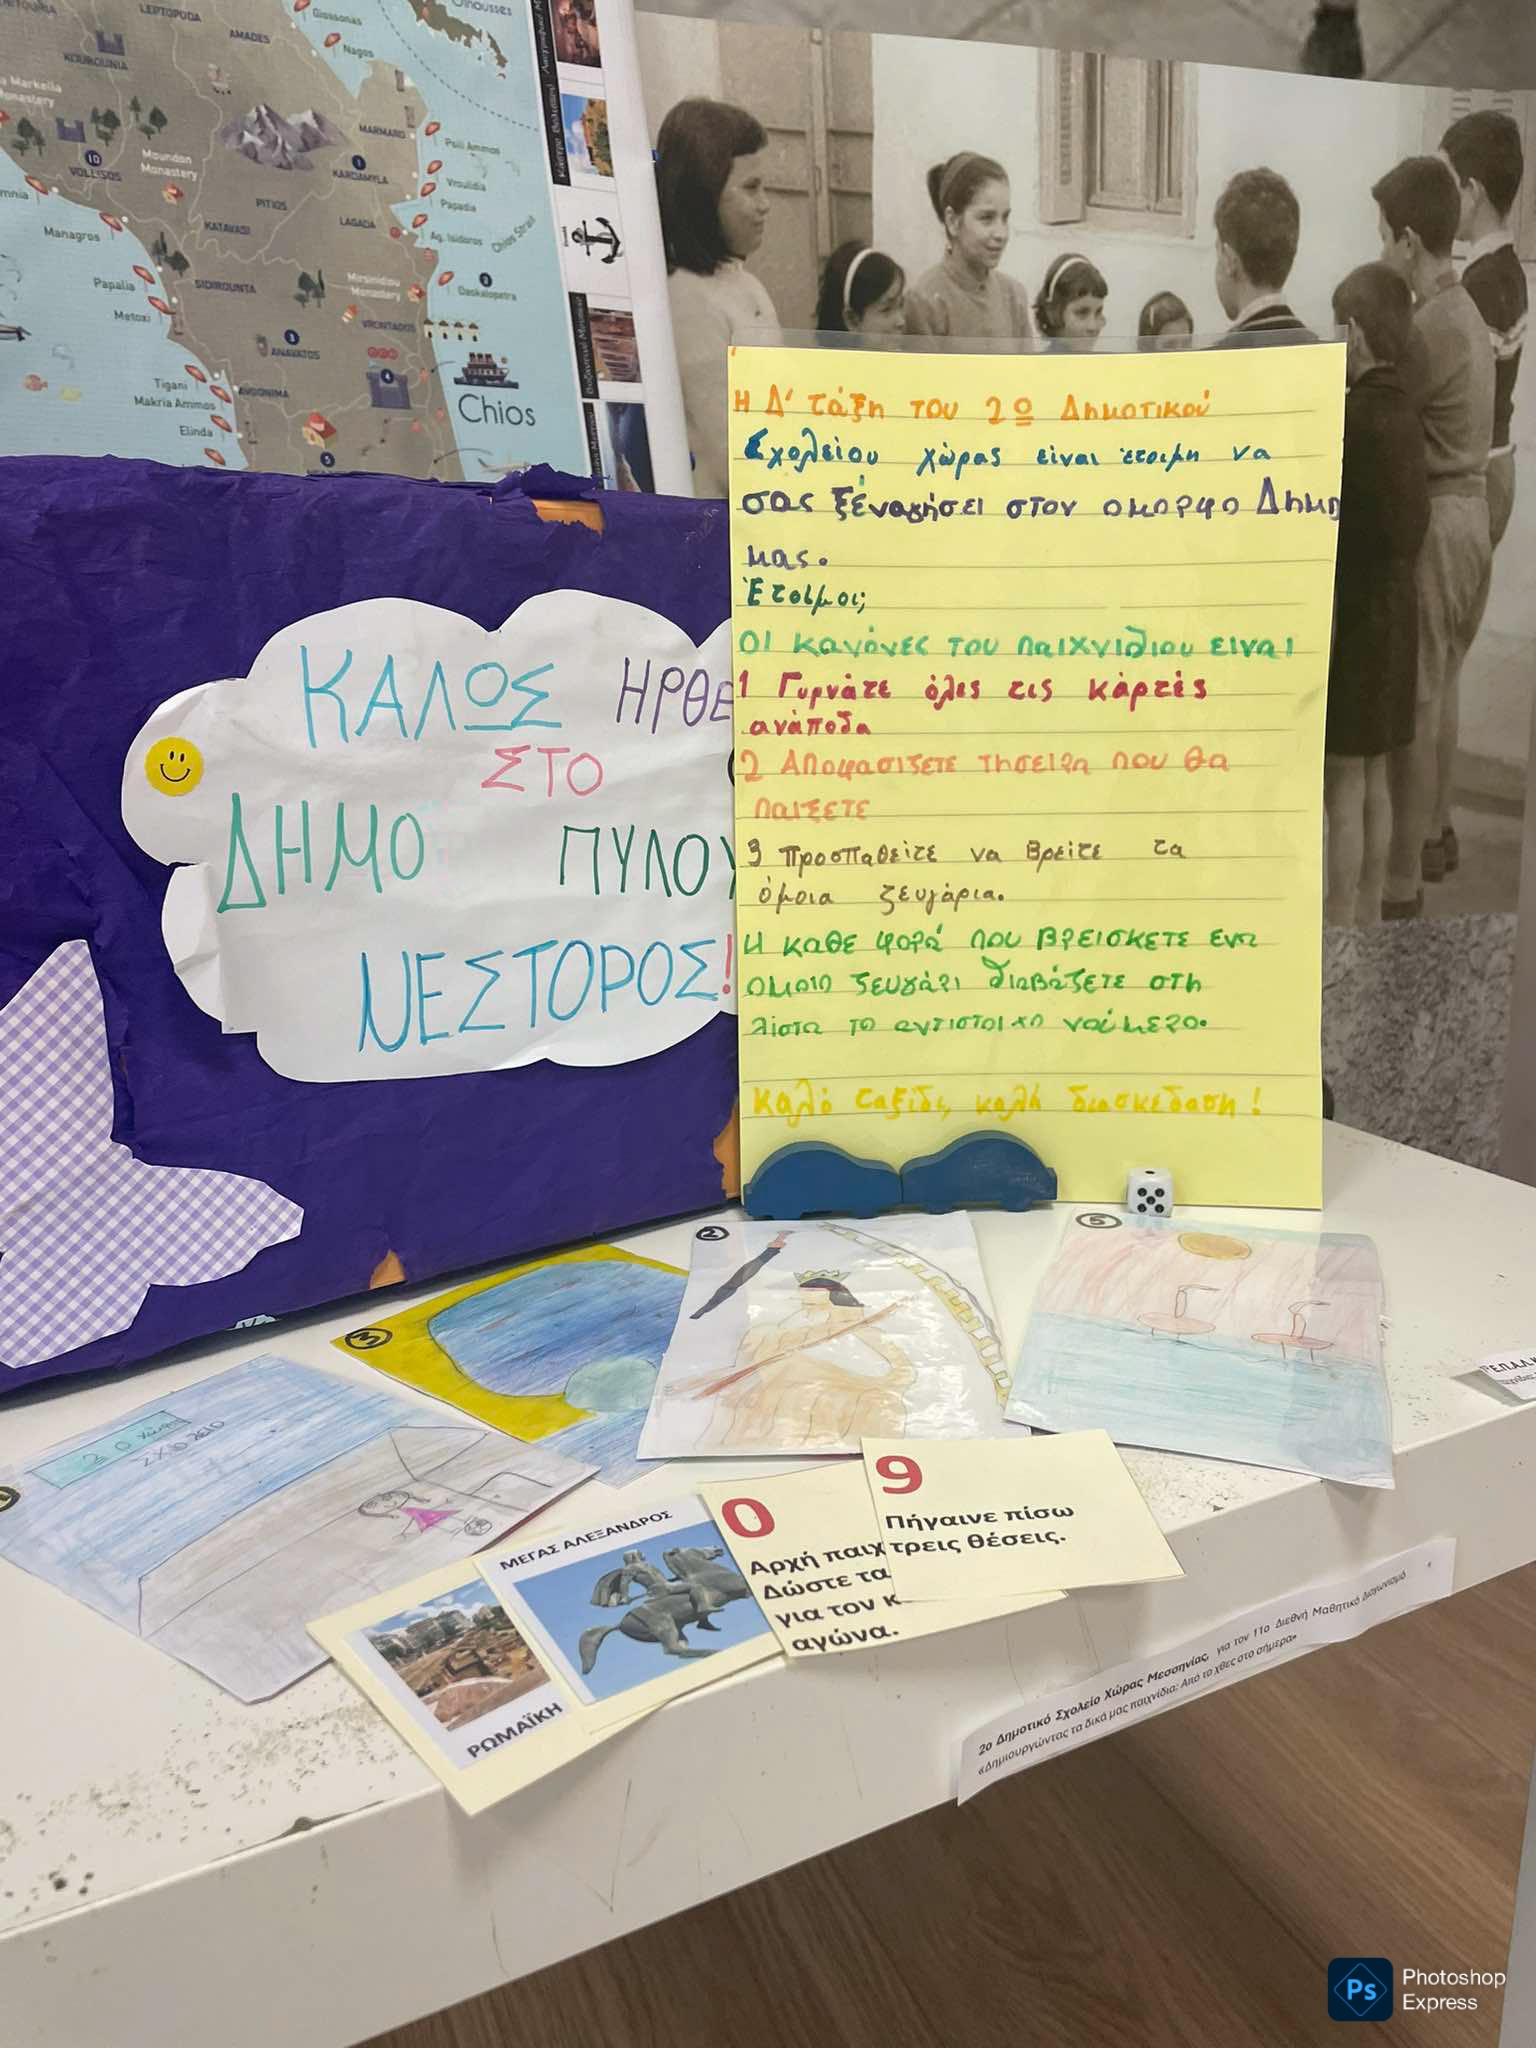 LEPTOPODA
AMADES
Giossonas
Nagos
KOUROUNIA
Markella
Monastery
MARMARO
Psili Ammos
10
VOLISSOS
Moundon
Monastery
1
KARDAMYLA
Vroulidia
PITIOS
Papalia
Managros
KATAVASI
LAGADA
Ag. Isidoros
Chios Strait
Papalia
SIDIROUNTA
Mirsinidiou
Monastery
2
Daskalopetra
Metoxi
VRONTADOS
3
ANAVATOS
4
Tigani
Makria Ammos
AVGONIMA
Chios
Elinda
5
Η Δ' τάξη του 2ο Δημοτικού
Σχολείου χώρας είναι έτοιμη να
σας ξεναγήσει στον ομορφο Δημο
μας.
Έτοιμοι;
Οι κανόνες του παιχνιδιου ειναι
1 Γυρνάτε όλες τις κάρτές
ανάποδα
2 Αποφασιζετε τησειρη που θα
παιξετε
3 Προσπαθείτε να βρείτε τα
όμοια ζευγάρια.
4 καθε φορά που βρεισκετε ενα
ομοιο ζευγάρι διαβάζετε στη
λίστα το αντιστοιχο νούμερο.
Καλό ταξίδι, καλή διασκέδαση!
ΚΑΛΩΣ ΗΡΘΕ
ΣΤΟ
ΔΗΜΟ ΠΥΛΟΥ
ΝΕΣΤΟΡΟΣ!
2
5
3
2ο χώρας
ΣΧΟΛΕΙΟ
ΜΕΓΑΣ ΑΛΕΞΑΝΔΡΟΣ
ΡΩΜΑΪΚΗ
0
Αρχή παιχ
Δώστε τα
για τον κ
αγώνα.
9
Πήγαινε πίσω
τρεις θέσεις.
2ο Δημοτικό Σχολείο Χώρας Μεσσηνίας, για τον 11ο Διεθνή Μαθητικό Διαγωνισμό
«Δημιουργώντας τα δικά μας παιχνίδια: Από το χθες στο σήμερα»
Ps
Photoshop
Express